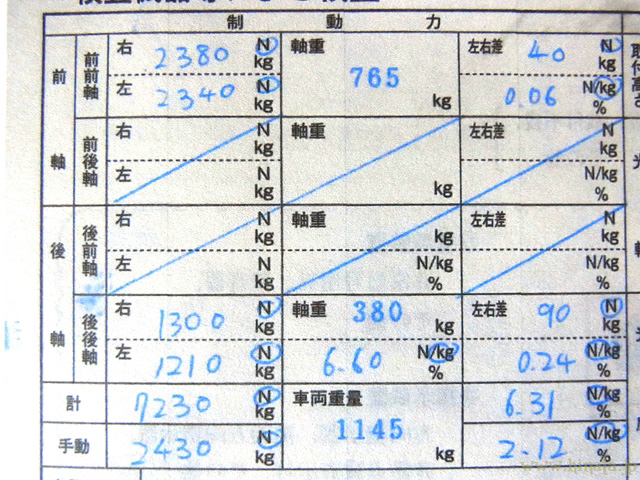 制 動 力
前軸 前前軸 右 2380 N kg 軸重 765 kg 左右差 40 N kg
左 2340 N kg 0.06 N/kg %
前後軸 右 N kg 軸重 kg 左右差 N kg
左 N kg N/kg %
後軸 後前軸 右 N kg 軸重 kg 左右差 N kg
左 N kg N/kg % N/kg %
後後軸 右 1300 N kg 軸重 380 kg 左右差 90 N kg
左 1210 N kg 6.60 N/kg % 0.24 N/kg %
計 7230 N kg 車両重量 1145 kg 6.31 N/kg %
手動 2430 N kg 2.12 N/kg %